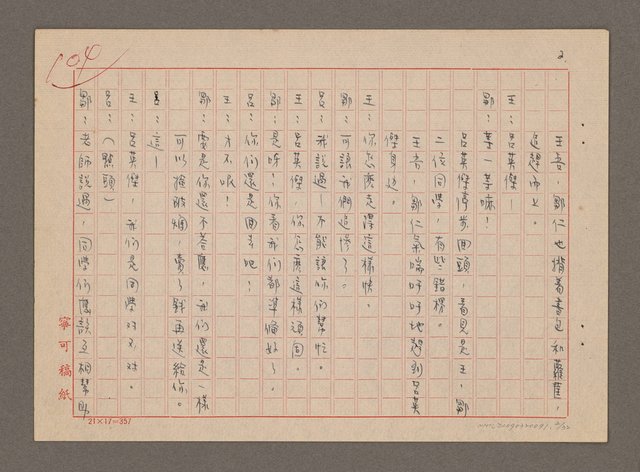 2.
104
王吾，鄒仁也揹着書包和蘿蔔，
追趕而上。
王：呂英傑！
鄒：等一等嘛！
呂英傑停步回頭，看見是王、鄒
二位同學，有些錯愕。
王吾，鄒仁氣喘呼呼地趕到呂英
傑身邊。
王：你怎麼走得這樣快。
鄒：可讓我們追慘了。
呂：我說過！不能讓你們幫忙。
王：呂英傑，你怎麼這樣頑固。
鄒：是呀！你看我們都準備好了。
呂：你們還是回去吧！
王：才不呢！
鄒：要是你還不答應，我們還是一樣
可以撿破爛，賣了錢再送給你。
呂：這！
王：呂英傑，我們是同學對不對。
呂：（點頭）
鄒：老師說過，同學們應該互相幫助
寧可稿紙
21×17=357